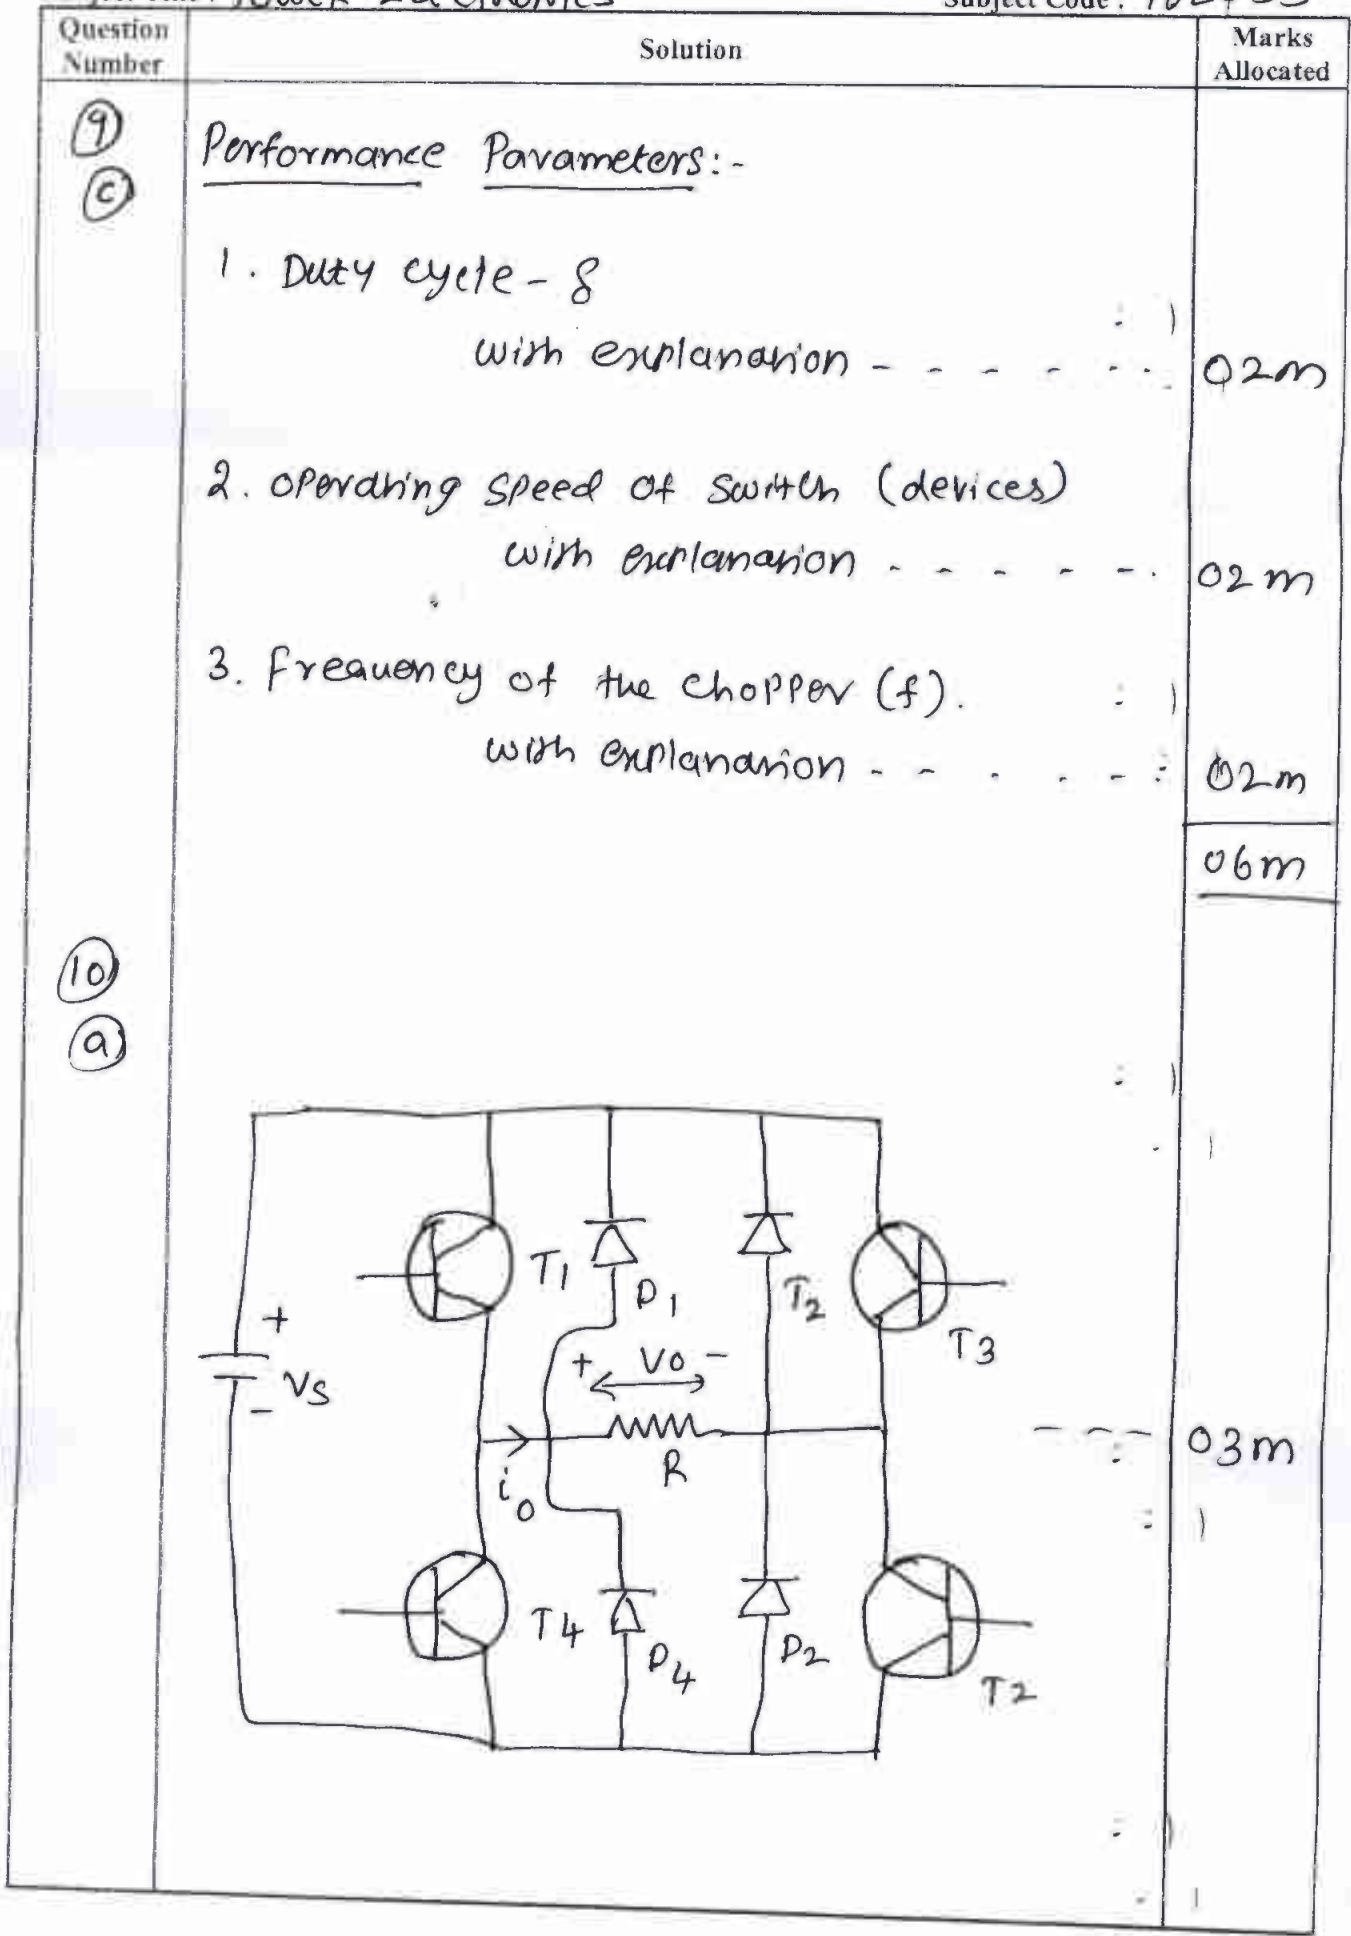 Question Number
Solution
Marks Allocated
9
c
Performance Parameters:-
1. Duty cycle - δ
with explanation - - - - - - 02m
2. operating speed of switch (devices)
with explanation - - - - - - 02m
3. frequency of the chopper (f).
with explanation - - - - - - 02m
06m
10
a
T1
D1
T2
T3
+
Vs
-
+ Vo -
R
io
- - - 03m
T4
D4
D2
T2